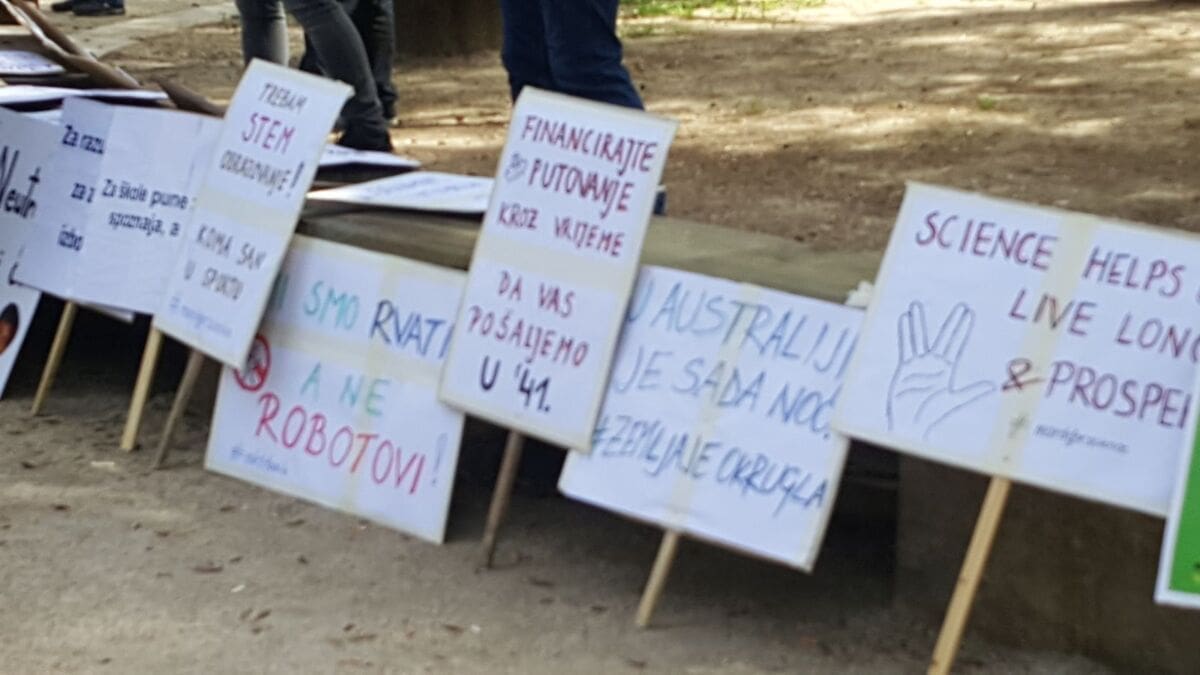 Neut
Za razu
za z
izbo
Za škole pune
spoznaja, a
TREBAM
STEM
OBRAZOVANJE!
KOMA SAN
U SPLITU
I SMO RVATI
A NE
ROBOTOVI!
FINANCIRAJTE
PUTOVANJE
KROZ VRIJEME
DA VAS
POŠALJEMO
U '41.
U AUSTRALIJI
JE SADA NOĆ.
#ZEMLJA JE OKRUGLA
SCIENCE HELPS
LIVE LONG
& PROSPER